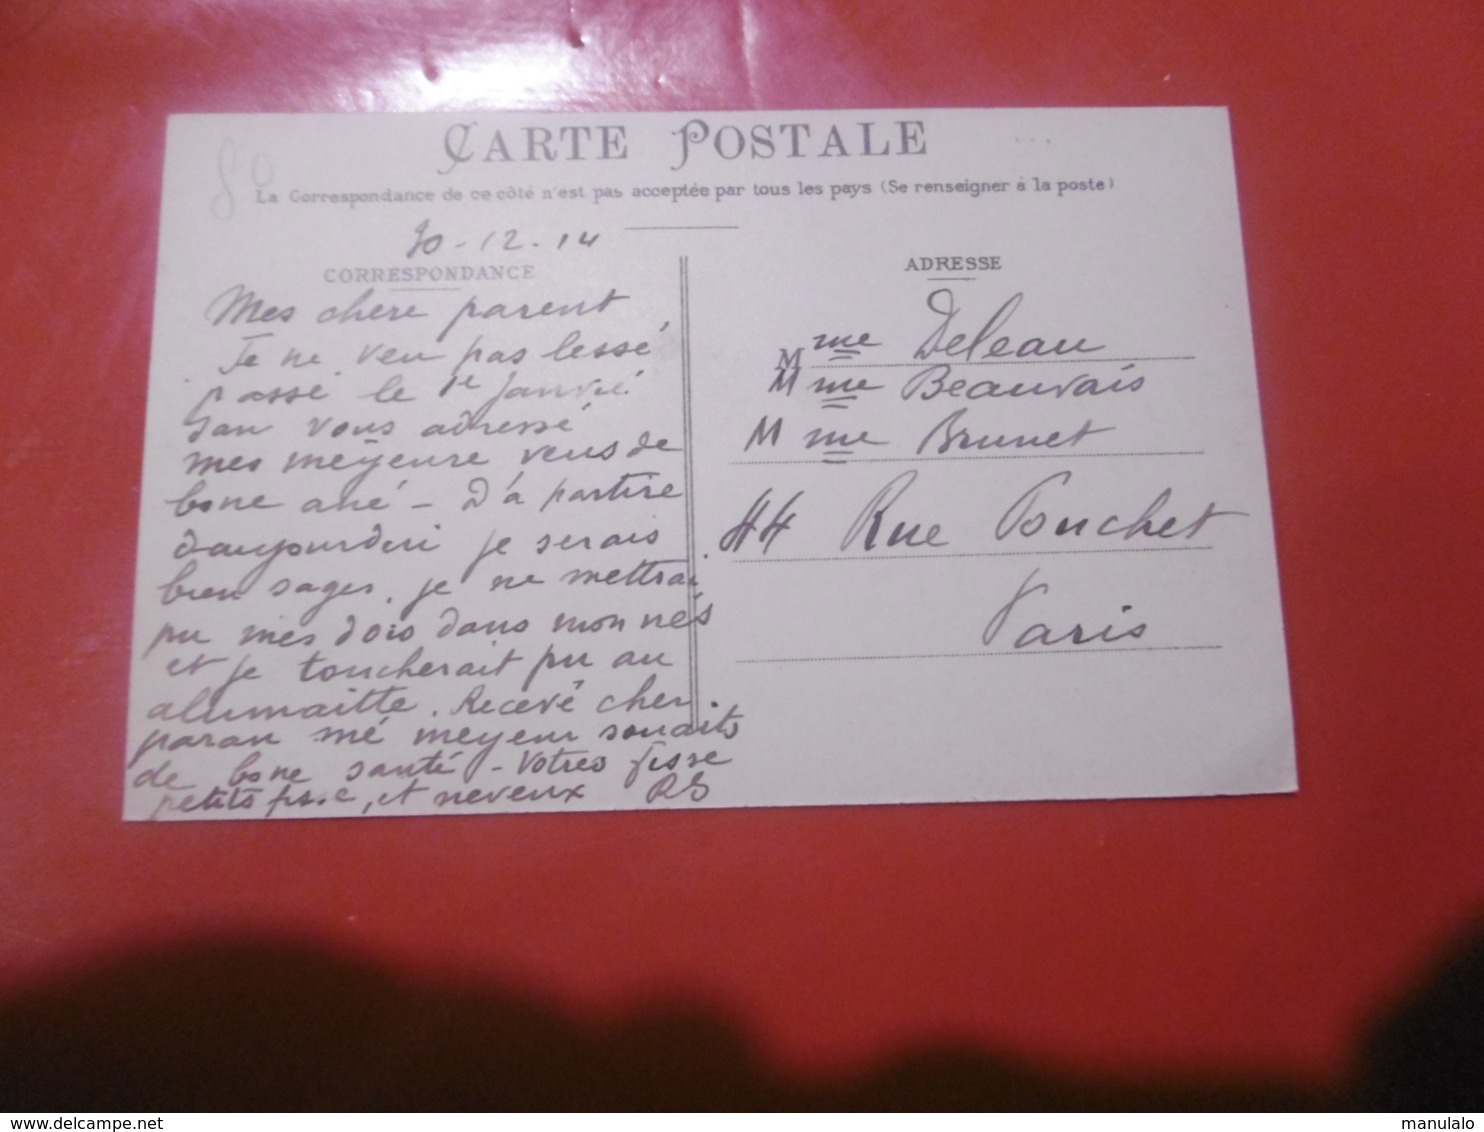 80
CARTE POSTALE
La Correspondance de ce côté n'est pas acceptée par tous les pays (Se renseigner à la poste)
30-12-14
CORRESPONDANCE
Mes chere parent
Je ne veu pas lessé
passé le 1e Janvié
san vous adressé
mes meyeure veus de
bone ané - D'a partire
daujourdui je serais
bien sages, je ne mettrai
pu mes dois dans mon nés
et je toucherait pu au
alumaitte. Recevé cher
paran mé meyeur souaits
de bone santé - Votres fisse
petits fisse, et neveux RS
ADRESSE
Mme Deleau
Mme Beauvais
Mme Brunet
44 Rue Pouchet
Paris
delcampe.net
manulalo